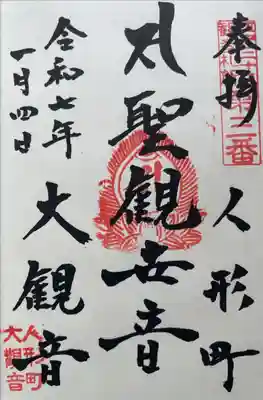 奉拝
人形町
聖観世音
大観音
令和七年
一月四日
人形町
大観音